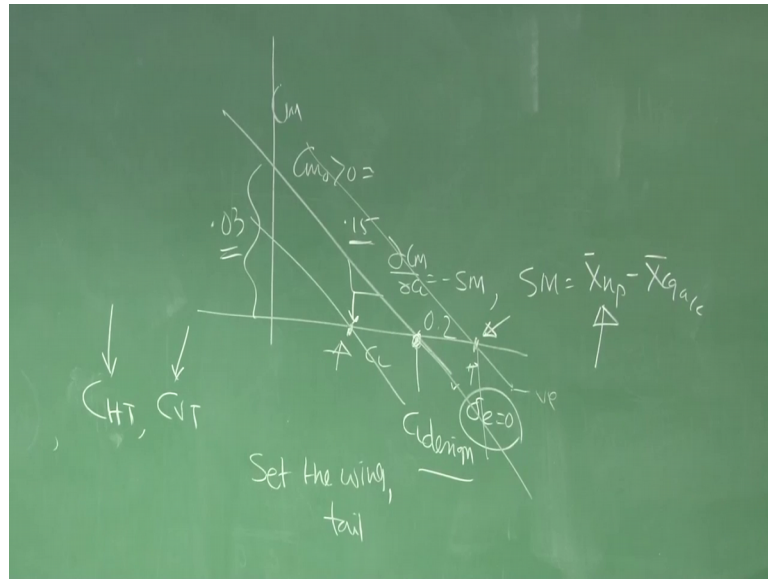 Cm
Cm₀>0=
.03
.15
∂Cm/∂CL=-SM, SM= X̄np-X̄cg a/c
0.2
CL
-ve
δe=0
CLdesign
, CHT, CVT
Set the wing,
tail